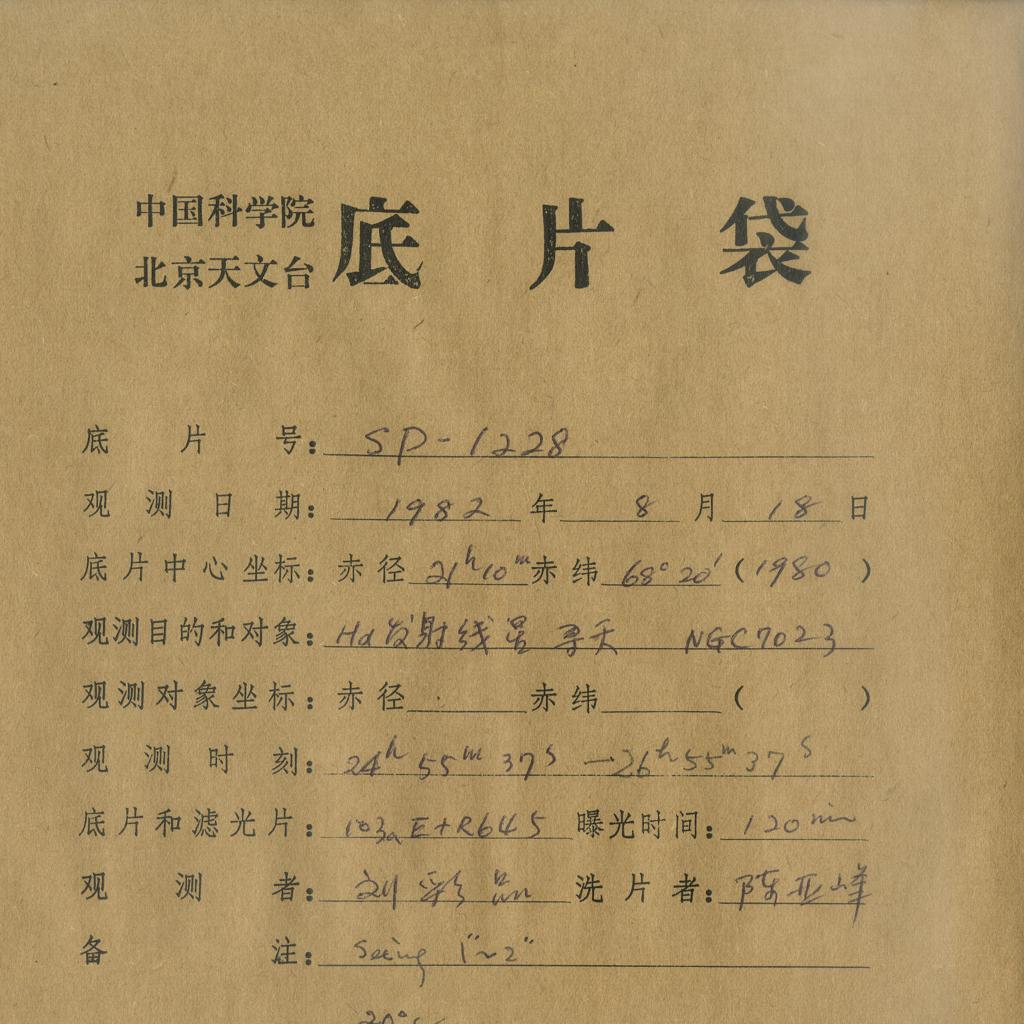 中国科学院
北京天文台 底片袋
底片号：SP-1228
观测日期：1982年8月18日
底片中心坐标：赤径 21ʰ10ᵐ 赤纬 68°20′（1980）
观测目的和对象：Hα发射线星 寻天 NGC7023
观测对象坐标：赤径 赤纬 （ ）
观测时刻：24ʰ55ᵐ37ˢ—26ʰ55ᵐ37ˢ
底片和滤光片：103aE+R645 曝光时间：120min
观测者：刘彩品 洗片者：陈亚峰
备注：Seeing 1″~2″
20°